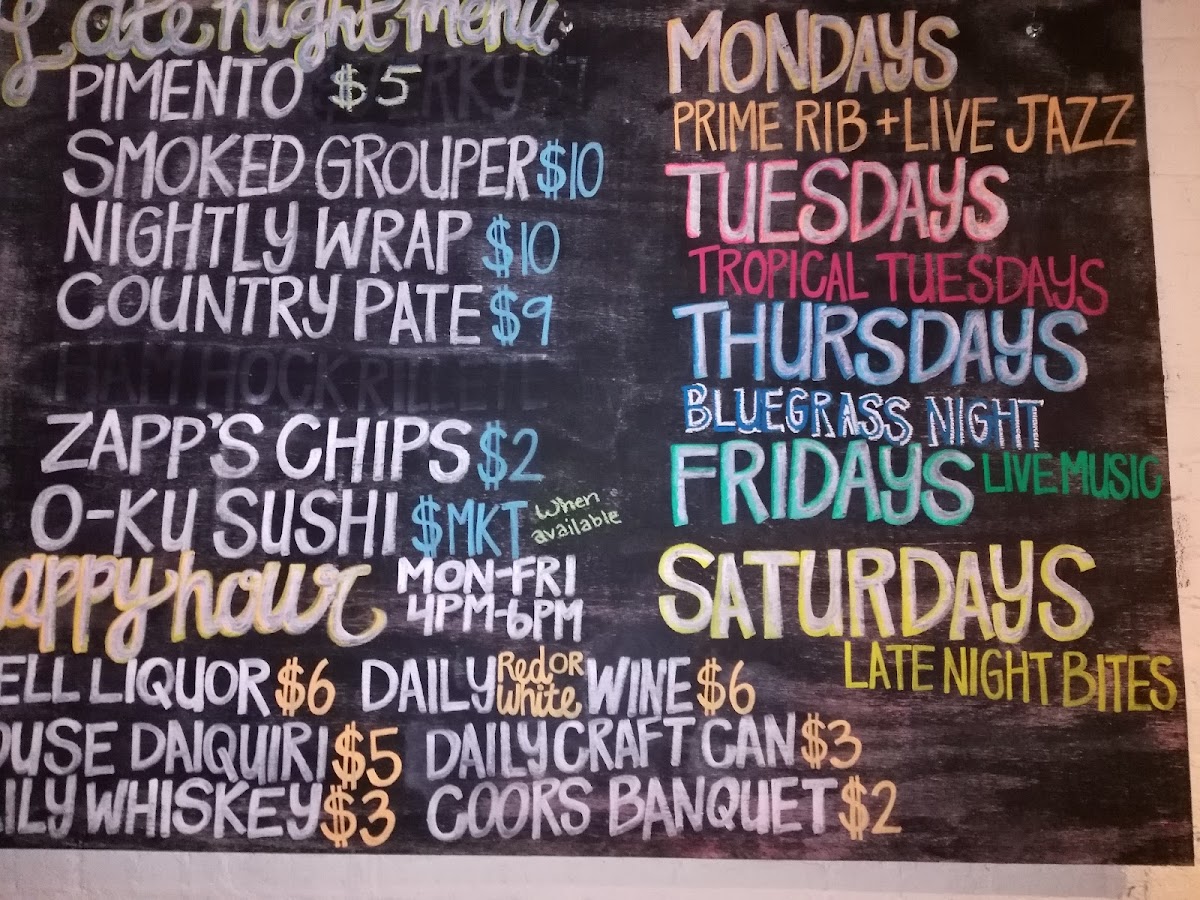 Late night menu
PIMENTO $5
SMOKED GROUPER $10
NIGHTLY WRAP $10
COUNTRY PATE $9
HAM HOCK RILLETE
ZAPP'S CHIPS $2
O-KU SUSHI $MKT When available
appy hour MON-FRI
4PM-6PM
ELL LIQUOR $6 DAILY Red OR White WINE $6
OUSE DAIQUIRI $5 DAILY CRAFT CAN $3
ILY WHISKEY $3 COORS BANQUET $2
MONDAYS
PRIME RIB + LIVE JAZZ
TUESDAYS
TROPICAL TUESDAYS
THURSDAYS
BLUEGRASS NIGHT
FRIDAYS LIVE MUSIC
SATURDAYS
LATE NIGHT BITES